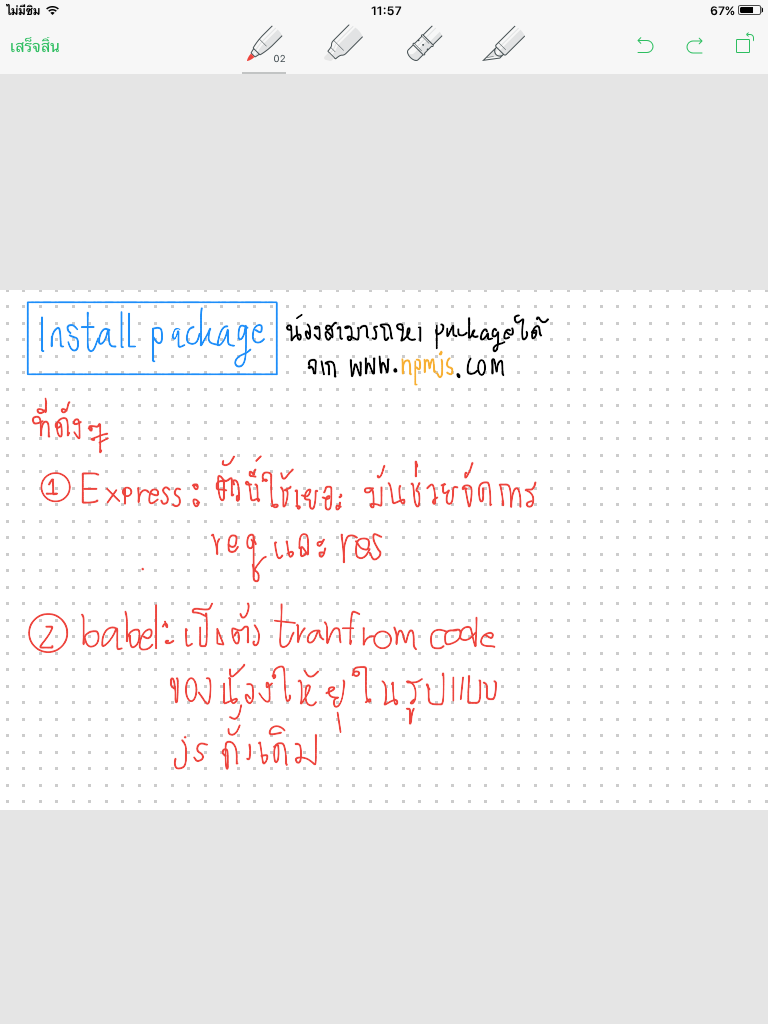 ไม่มีซิม 11:57 67%
เสร็จสิ้น 02
Install package น้องสามารถหา packageได้
จาก www.npmjs.com
ที่ดังๆ
① Express: ตัวนี้ใช้เยอะ มันช่วยจัดการ
req และ res
② babel: เป็นตัว tranfrom code
ของน้องให้ยุในรูปแบบ
js ดั้งเดิม